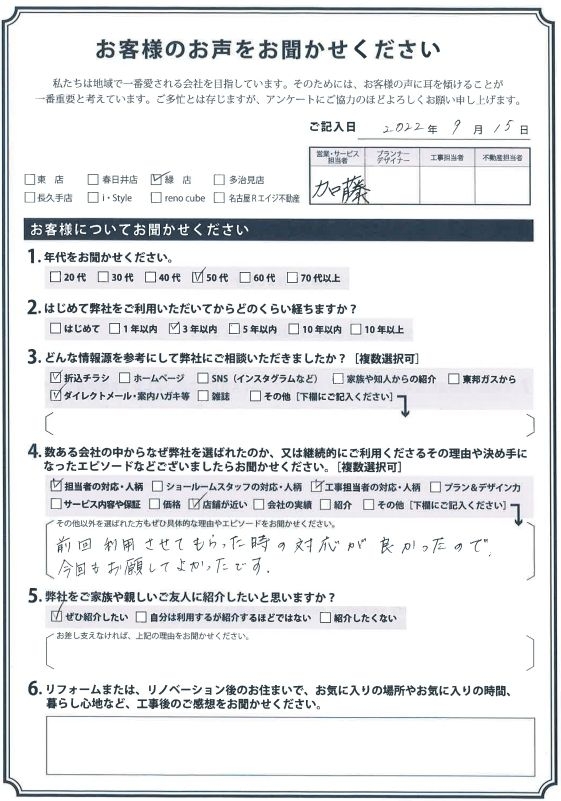 お客様のお声をお聞かせください
私たちは地域で一番愛される会社を目指しています。そのためには、お客様の声に耳を傾けることが
一番重要と考えています。ご多忙とは存じますが、アンケートにご協力のほどよろしくお願い申し上げます。
ご記入日 2022年 9月 15日
営業・サービス担当者 プランナーデザイナー 工事担当者 不動産担当者
加藤
□東 店 □春日井店 ☑緑 店 □多治見店
□長久手店 □i・Style □reno cube □名古屋Rエイジ不動産
お客様についてお聞かせください
1.年代をお聞かせください。
□20代 □30代 □40代 ☑50代 □60代 □70代以上
2.はじめて弊社をご利用いただいてからどのくらい経ちますか?
□はじめて □1年以内 ☑3年以内 □5年以内 □10年以内 □10年以上
3.どんな情報源を参考にして弊社にご相談いただきましたか?[複数選択可]
☑折込チラシ □ホームページ □SNS(インスタグラムなど) □家族や知人からの紹介 □東邦ガスから
☑ダイレクトメール・案内ハガキ等 □雑誌 □その他[下欄にご記入ください]
4.数ある会社の中からなぜ弊社を選ばれたのか、又は継続的にご利用くださるその理由や決め手に
なったエピソードなどございましたらお聞かせください。[複数選択可]
☑担当者の対応・人柄 □ショールームスタッフの対応・人柄 ☑工事担当者の対応・人柄 □プラン&デザイン力
□サービス内容や保証 □価格 ☑店舗が近い □会社の実績 □紹介 □その他[下欄にご記入ください]
その他以外を選ばれた方もぜひ具体的な理由やエピソードをお聞かせください。
前回利用させてもらった時の対応が良かったので、
今回もお願してよかったです.
5.弊社をご家族や親しいご友人に紹介したいと思いますか?
☑ぜひ紹介したい □自分は利用するが紹介するほどではない □紹介したくない
お差し支えなければ、上記の理由をお聞かせください。
6.リフォームまたは、リノベーション後のお住まいで、お気に入りの場所やお気に入りの時間、
暮らし心地など、工事後のご感想をお聞かせください。